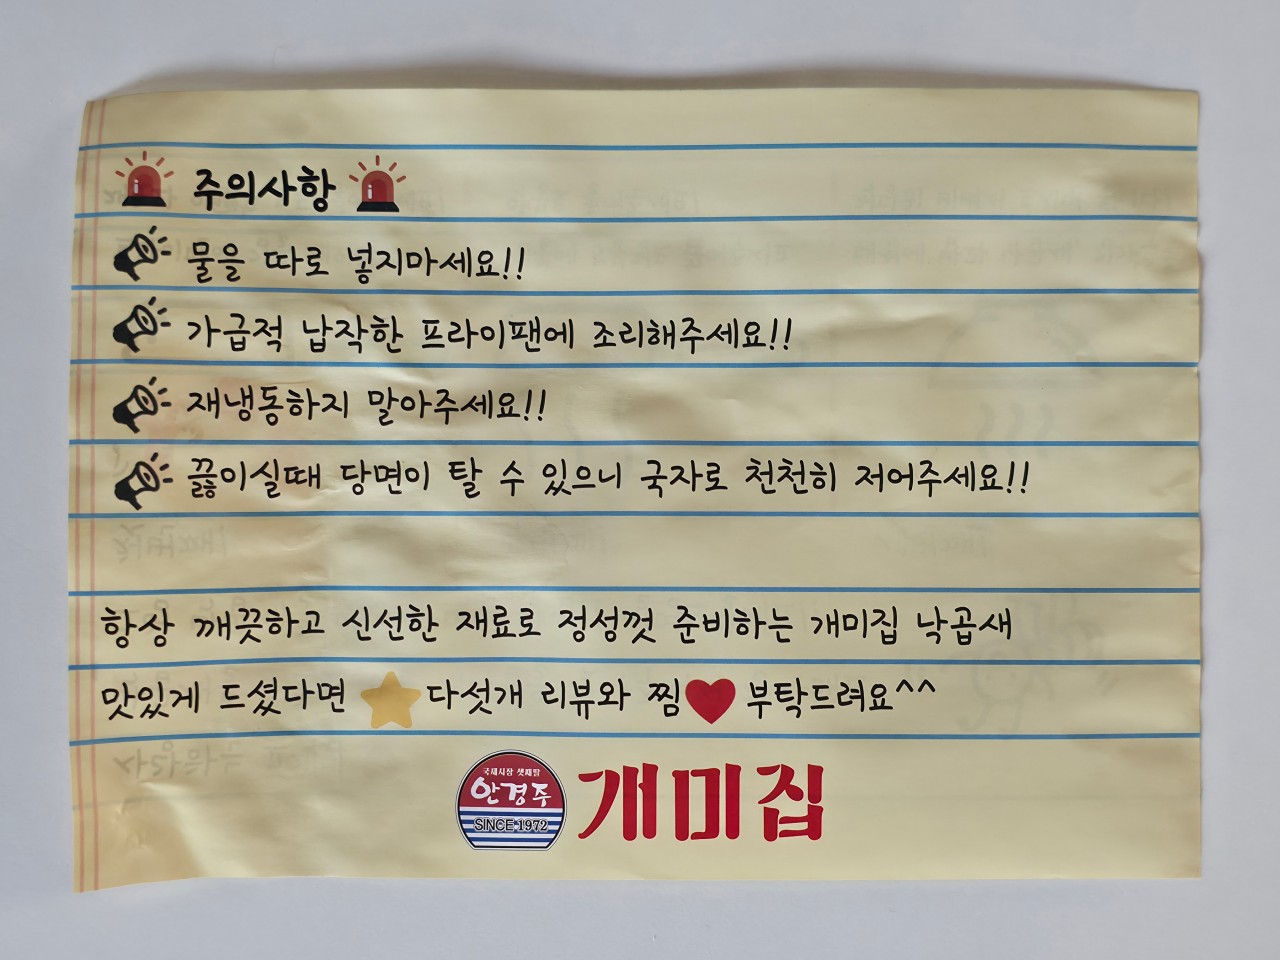 주의사항
물을 따로 넣지마세요!!
가급적 납작한 프라이팬에 조리해주세요!!
재냉동하지 말아주세요!!
끓이실때 당면이 탈 수 있으니 국자로 천천히 저어주세요!!
항상 깨끗하고 신선한 재료로 정성껏 준비하는 개미집 낙곱새
맛있게 드셨다면 다섯개 리뷰와 찜 부탁드려요^^
국제시장
안경주
SINCE 1972
개미집